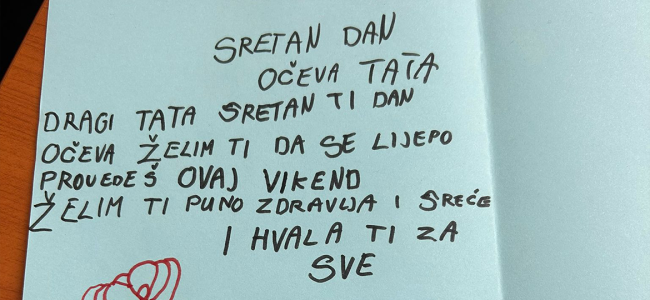 SRETAN DAN
OČEVA TATA
DRAGI TATA SRETAN TI DAN
OČEVA ŽELIM TI DA SE LIJEPO
PROVEDEŠ OVAJ VIKEND
ŽELIM TI PUNO ZDRAVLJA I SREĆE
I HVALA TI ZA
SVE